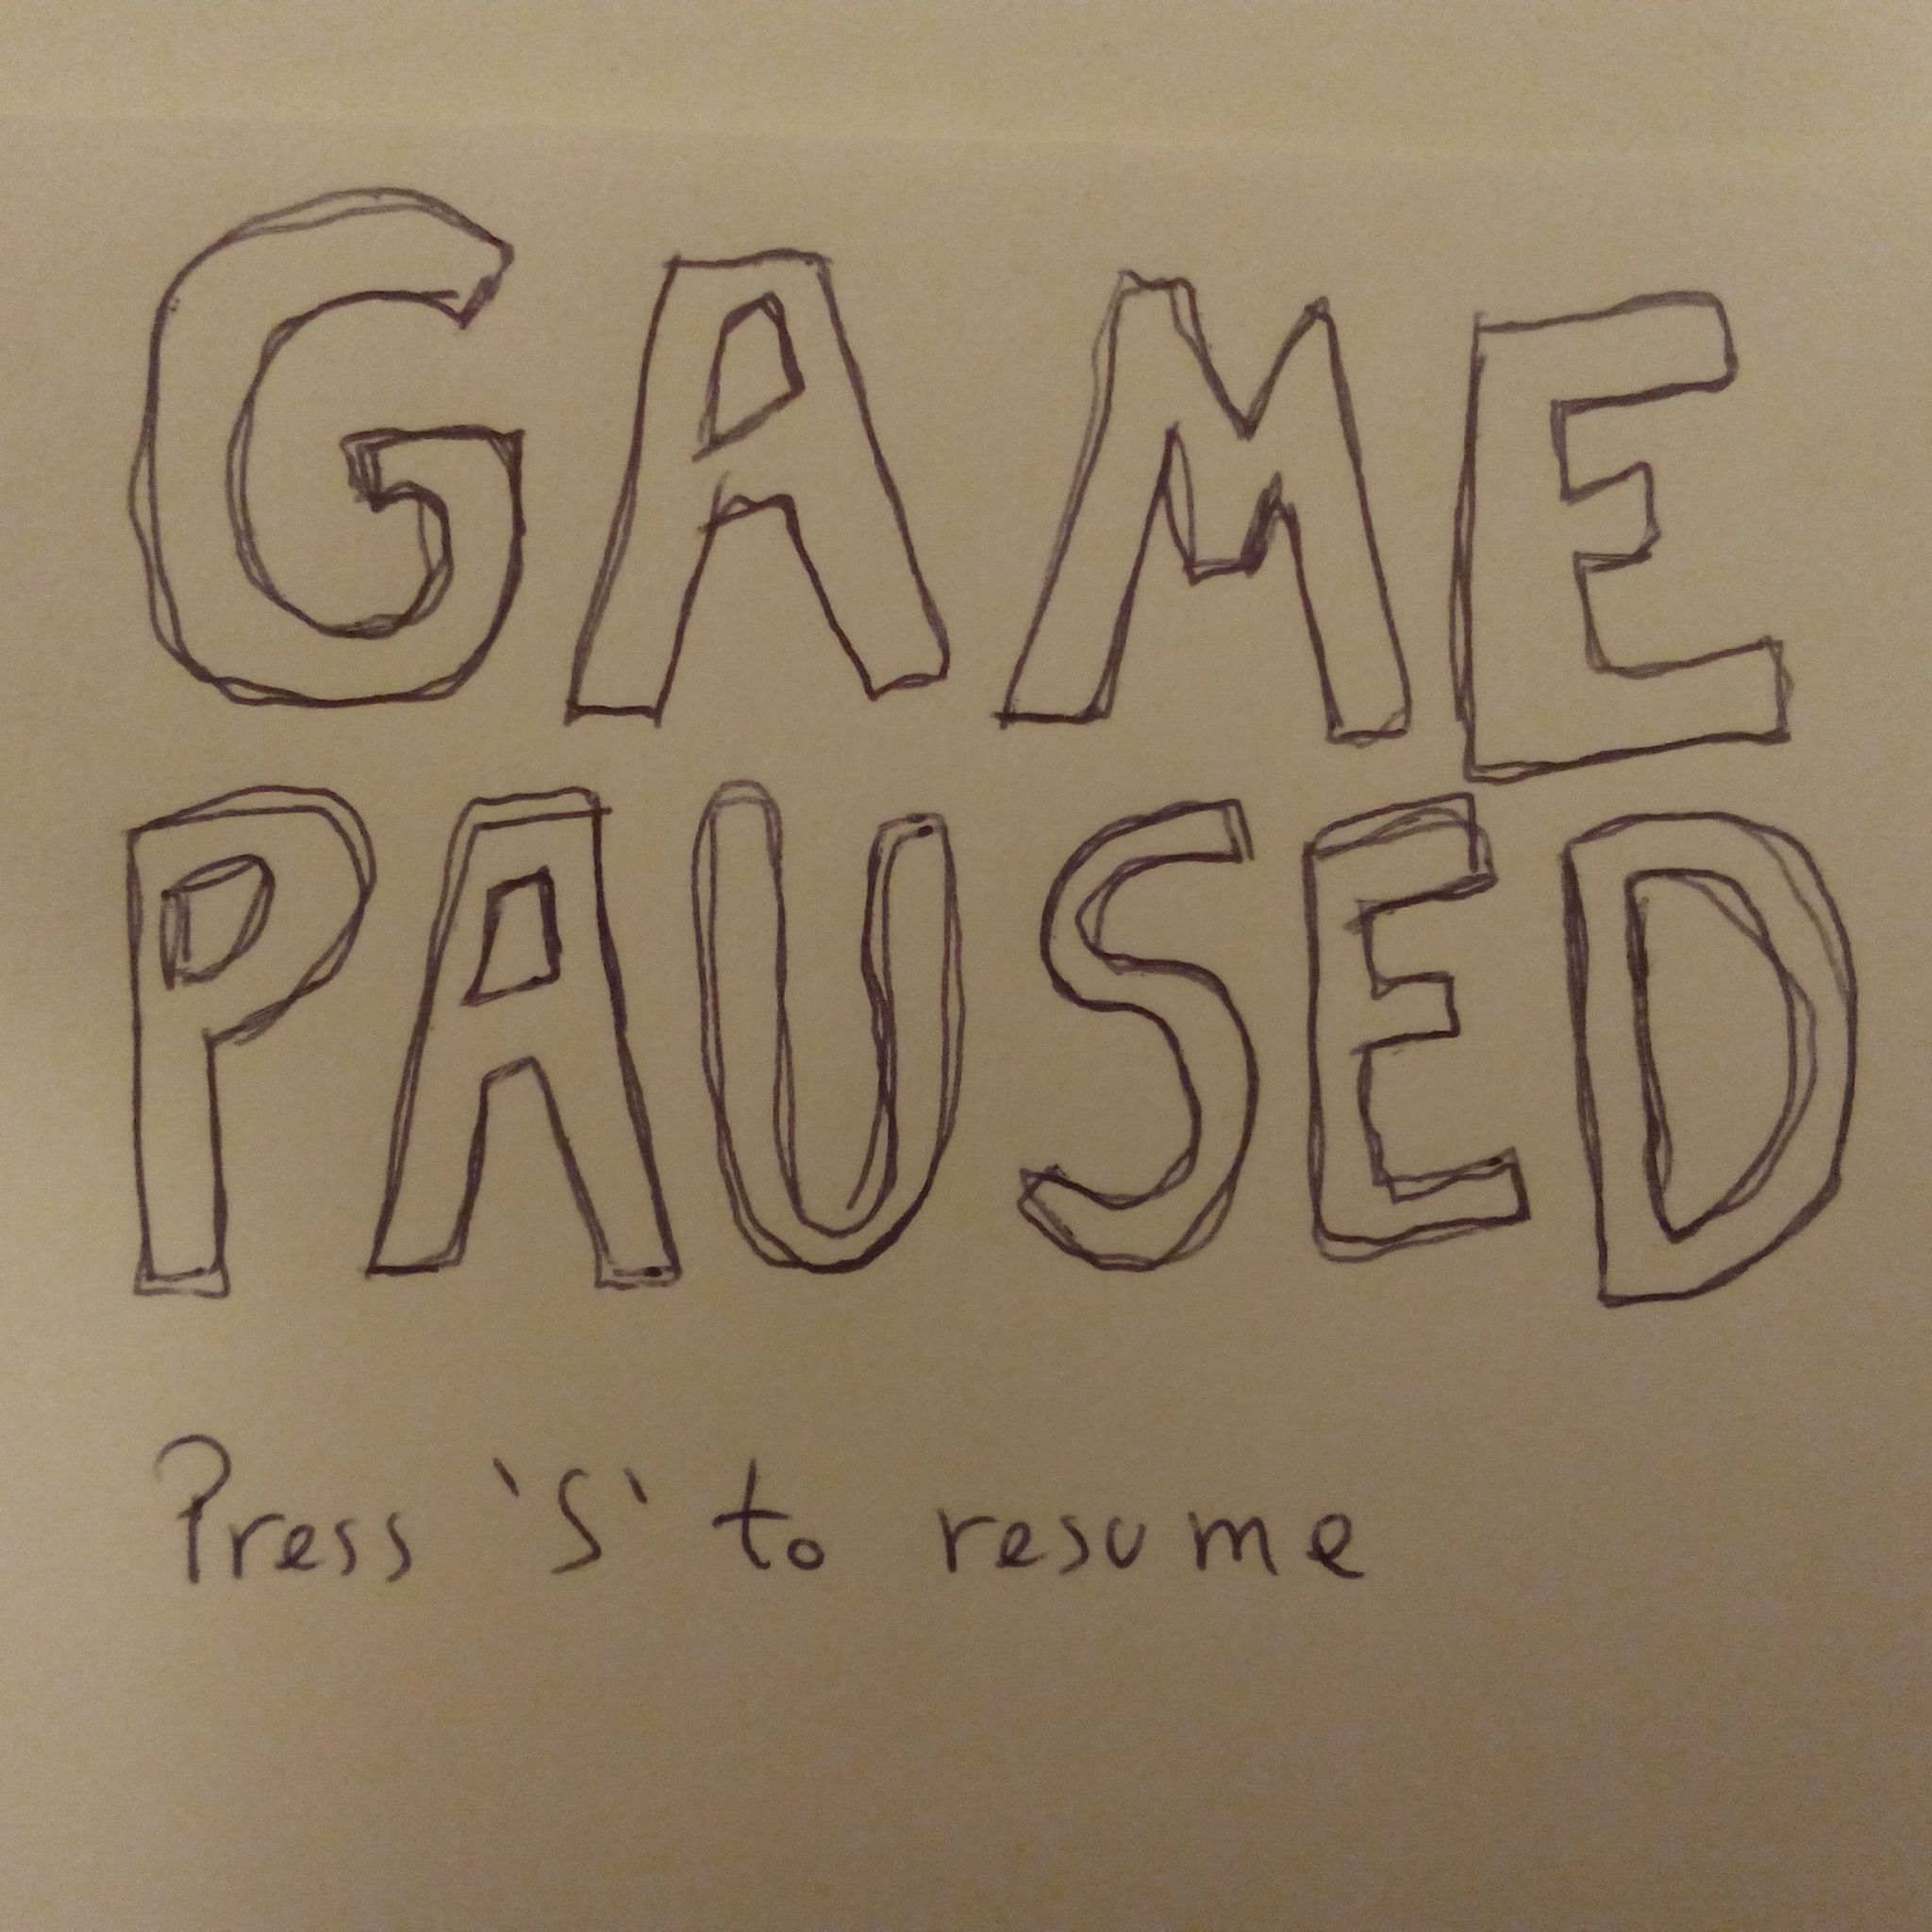 GAME
PAUSED
Press 'S' to resume